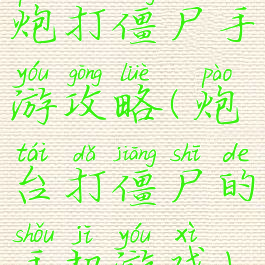 炮打僵尸手
yóu gōng lüè pào
游攻略(炮
tái dǎ jiāng shī de
台打僵尸的
shǒu jī yóu xì
手机游戏)